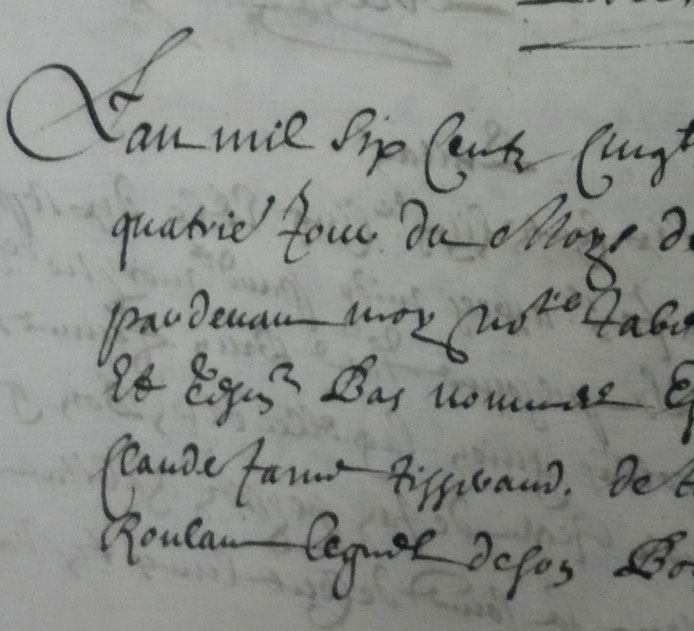 Lan mil Six Centz Cinqt
quatrie' Jour du Moys de
pardevan moy no.re Tabe
Et Tesm. Bas nomme
Claude Tisserand. de
Roulan lequel de son Bo